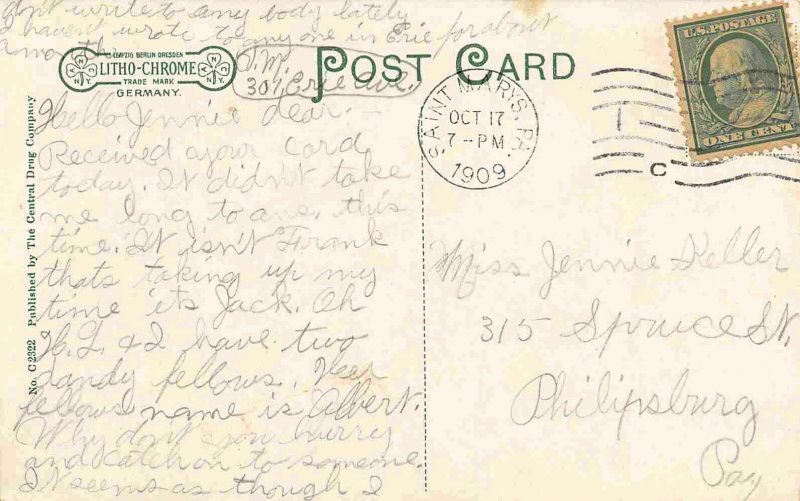 dont write to any body lately
I haven't wrote to any one in Erie for about
a month
LEIPZIG BERLIN DRESDEN
LITHO-CHROME
TRADE MARK
GERMANY.
N Y
N Y
POST CARD
301 Erie Ave.
SAINT MARYS, PA.
OCT 17
7-PM
1909
C
U.S. POSTAGE
ONE CENT
Hello Jennie dear.
Received your card
today. It didn't take
me long to ans. this
time. It isn't Frank
thats taking up my
time its Jack. Oh
& I have two
dandy fellows. Her
fellows name is Albert.
Why don't you hurry
and catch on to someone.
It seems as though I
Miss Jennie Keller
315 Spruce St.
Philipsburg
Pa
No. C 2322 Published by The Central Drug Company